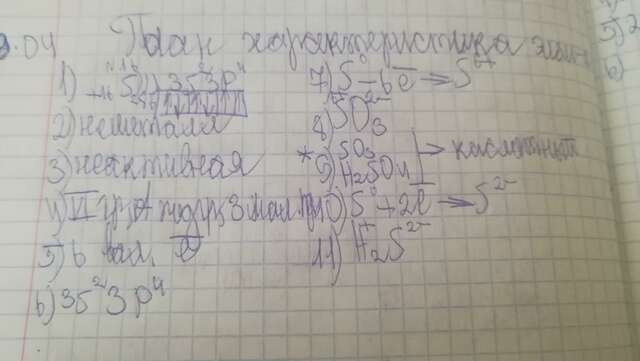 9.04 План характеристика элем
1) S 3s²3p⁴
2) неметалл
3) неактивная
4) VI гр, А подгр, 3 мал. п
5) 6 вал. ē
6) 3s²3p⁴
7) S⁰ - 6ē → S⁶⁺
8) SO₃
* 9) SO₃
H₂SO₄
→ кислотный
10) S⁰ + 2ē → S²⁻
11) H₂⁺S²⁻
5) 2
6)